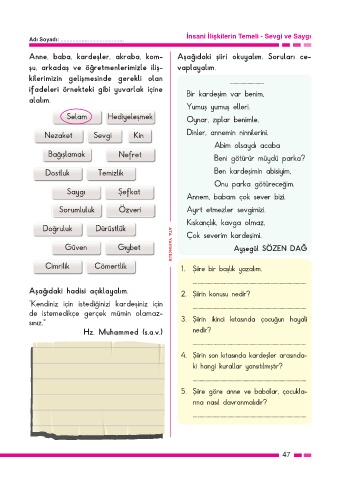 İnsani İlişkilerin Temeli - Sevgi ve Saygı
Adı Soyadı: ..............................
Anne, baba, kardeşler, akraba, kom-
şu, arkadaş ve öğretmenlerimizle iliş-
kilerimizin gelişmesinde gerekli olan
ifadeleri örnekteki gibi yuvarlak içine
alalım.
Selam
Hediyeleşmek
Nezaket
Sevgi
Kin
Bağışlamak
Nefret
Dostluk
Temizlik
Saygı
Şefkat
Sorumluluk
Özveri
Doğruluk
Dürüstlük
Güven
Gıybet
Cimrilik
Cömertlik
Aşağıdaki hadisi açıklayalım.
"Kendiniz için istediğinizi kardeşiniz için
de istemedikçe gerçek mümin olamaz-
sınız."
Hz. Muhammed (s.a.v.)
Aşağıdaki şiiri okuyalım. Soruları ce-
vaplayalım.
Bir kardeşim var benim,
Yumuş yumuş elleri.
Oynar, zıplar benimle,
Dinler, annemin ninnilerini.
Abim olsaydı acaba
Beni götürür müydü parka?
Ben kardeşimin abisiyim,
Onu parka götüreceğim.
Annem, babam çok sever bizi,
Ayırt etmezler sevgimizi.
Kıskançlık, kavga olmaz,
Çok severim kardeşimi.
Ayşegül SÖZEN DAĞ
1. Şiire bir başlık yazalım.
2. Şiirin konusu nedir?
3. Şiirin ikinci kıtasında çocuğun hayali
nedir?
4. Şiirin son kıtasında kardeşler arasında-
ki hangi kurallar yansıtılmıştır?
5. Şiire göre anne ve babalar, çocukla-
rına nasıl davranmalıdır?
47